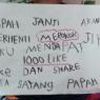 PAPAH JANJI AKAN
BERHENTI MEROKOK JI
KU MENDAPAT
1000 LIKE
DAN SHARE
SAYANG PAPAH